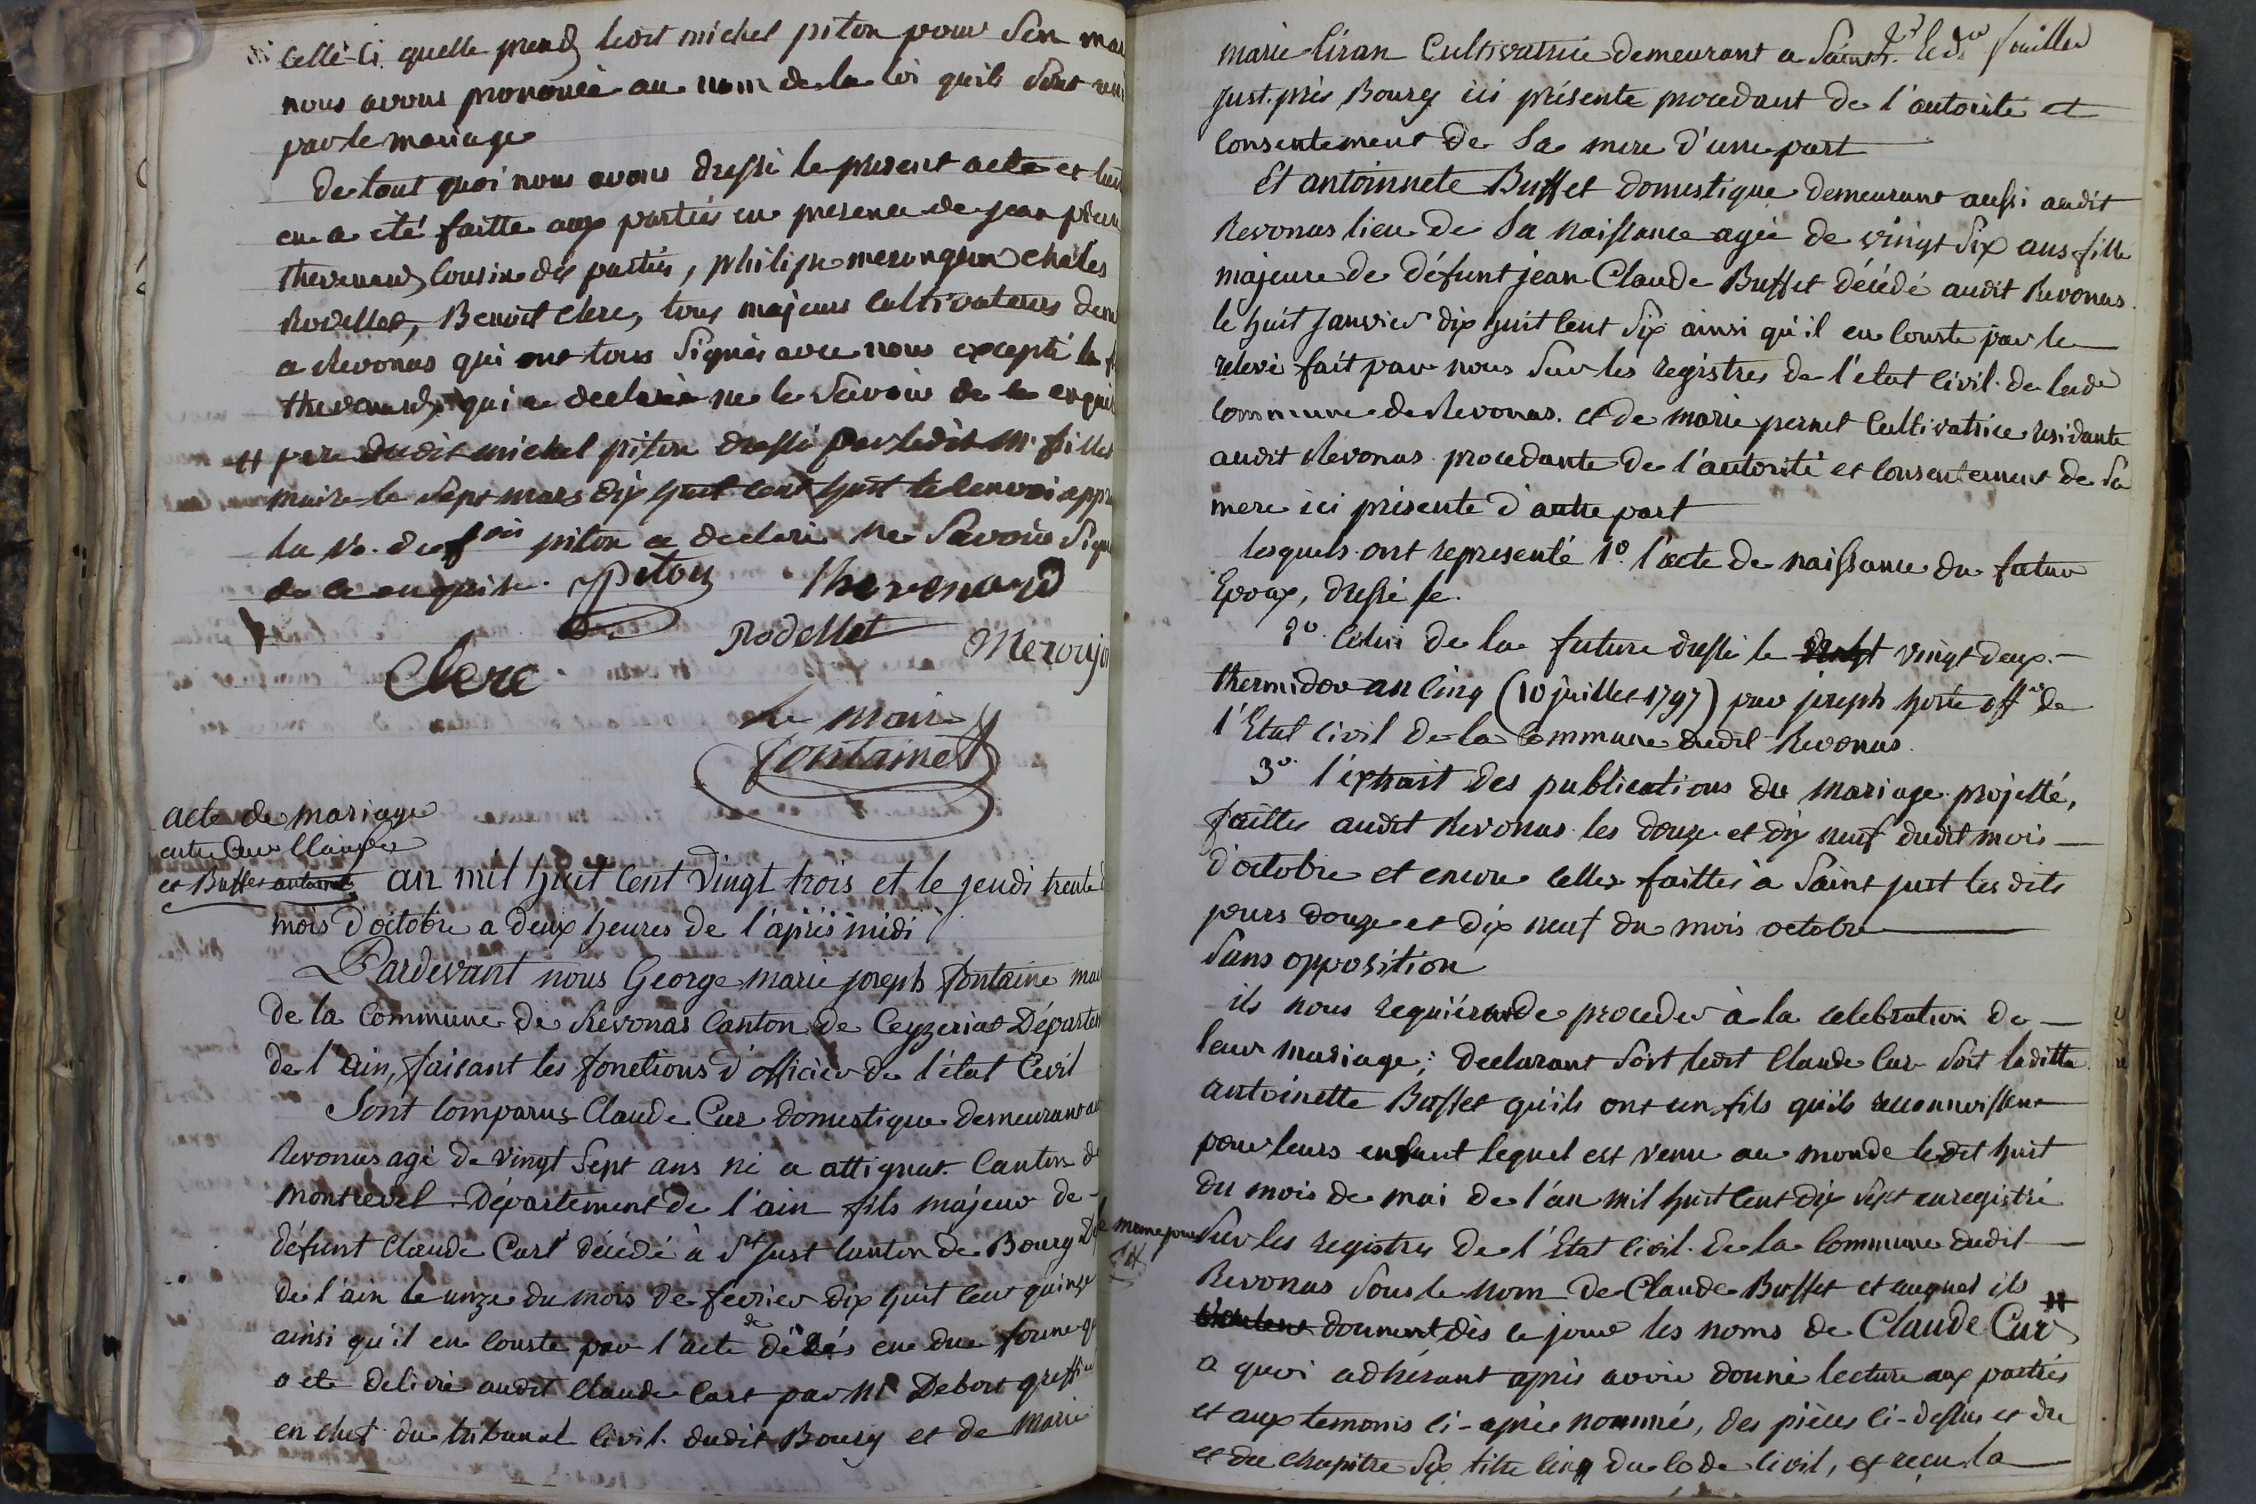 Celle-Ci quelle prend ledit michel piton pour Son mar
nous avons prononcé au nom de la loi quils Sont uni
par le mariage
De tout quoi nous avons dressé le present acte et lect
en a été faitte aux parties en presence de jean pierre
thevenard Cousin des parties, philipe merongeon chales
Rodellet, Benoit clerc, tous majeurs Cultivateurs dem
a Revonas qui ont tous Signés avec nous excepté la
thevenard, qui a declaré ne le Savoir de ce enquis
# pere dudit michel piton dressé par ledit Mr
maire le Sept mars dix huit cent huit le renvoi appr
la ve. de fois piton a declaré ne Savoir Signe
de ce enquise. Piton Thevenard
Rodellet Meronjon
Clerc
Le Maire
Fontaine
acte de mariage
entre Cur Claude
et Buffet antoinette
an mil huit Cent Vingt trois et le jeudi trente d
mois d'octobre a deux heures de l'après midi
Pardevant nous George marie joseph fontaine mai
de la Commune de Revonas Canton de Ceyzeriat Départem
de l'ain, faisant les fonctions d'officier de l'état Civil
Sont Comparus Claude Cur domestique demeurant au
Revonas agé de Vingt Sept ans né a attignat Canton de
montrevel Département de l'ain fils majeur de
défunt Claude Curt décédé à St just Canton de Bourg Dt
de l'ain le onze du mois de fevrier dix huit Cent quinze
ainsi qu'il en Conste par l'acte de décés en due forme qui
a ete delivré audit Claude Curt par Mr Debost greffier
en chef du tribunal Civil dudit Bourg et de Marie
marie liran Cultivatrice demeurant a Saint
just près Bourg ici présente procedant de l'autorité et
Consentement de Sa mere d'une part
Et antoinnete Buffet domestique demeurant aussi audit
Revonas lieu de Sa Naissance agée de vingt Six ans fille
majeure de défunt jean Claude Buffet décédé audit Revonas
le huit Janvier dix huit Cent Six ainsi qu'il en Conste par le
relevé fait par nous Sur les registres de l'état Civil de lade
Commune de Revonas. et de marie pernet Cultivatrice residante
audit Revonas procedante de l'autorité et Consentement de Sa
mere ici présente d'autre part
lesquels ont representé 1o. l'acte de naissance du futur
Epoux, dressé le.
2o. Celui de la future dressé le vingt deux
thermidor an Cinq (10 juillet 1797) par joseph hote offer de
l'Etat Civil de la Commune dudit Revonas.
3o. l'extrait des publications du mariage projetté,
faittes audit Revonas les douze et dix neuf dudit mois
d'octobre et encore Celles faittes à Saint just les dits
jours douze et dix neuf du mois octobre
Sans opposition
ils nous requiérent de proceder à la celebration de
leur mariage; declarant Soit ledit Claude Cur Soit laditte
antoinette Buffet qu'ils ont un fils qu'ils reconnoissent
pour leurs enfant lequel est venu au monde ledit huit
du mois de mai de l'an mil huit Cent dix Sept enregistré
le meme jour Sur les registres de l'Etat Civil de la Commune dudit
Revonas Sous le nom de Claude Buffet et auquel ils
donnent dès ce jour les noms de Claude Cur #
a quoi adhérant après avoir donné lecture aux parties
et aux temoins Ci-après nommé, des pièces Ci-dessus et du
et du chapitre Six titre Cinq du Code Civil, et reçu la